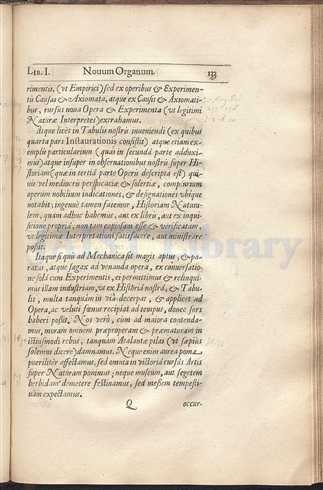 LIB. I. Novum Organum. 133
rimentis, (vt Empirici) sed ex operibus & Experimen-
tis Causas & Axiomata, atque ex Causis & Axiomati-
bus, rursus noua Opera & Experimenta (vt legitimi
Naturæ Interpretes) extrahamus.
Atque licet in Tabulis nostris inueniendi (ex quibus
quarta pars Instaurationis consistit) atque etiam ex-
emplis particularium (quæ in secundâ parte adduxi-
mus) atque insuper in obseruationibus nostris super Hi-
storiam (quæ in tertiâ parte Operis descripta est) qui-
uis vel mediocris perspicaciæ & solertiæ, complurium
operum nobilium indicationes, & designationes vbique
notabit; ingenuè tamen fatemur, Historiam Natura-
lem, quam adhuc habemus, aut ex libris, aut ex inqui-
sitione propriâ, non tam copiosam esse & verificatam,
vt legitimæ Interpretationi satisfacere, aut ministrare
possit.
Itaque si quis ad Mechanica sit magis aptus, & pa-
ratus, atque sagax ad venanda opera, ex conuersatio-
ne solâ cum Experimentis, ei permittimus & relinqui-
mus illam industriam, vt ex Historiâ nostrâ, & Tabu-
lis, multa tanquàm in viâ decerpat, & applicet ad
Opera, ac veluti fœnus recipiat ad tempus, donec sors
haberi possit. Nos verò, cùm ad maiora contenda-
mus, moram omnem præproperam & præmaturam in
istiusmodi rebus, tanquàm Atalantæ pilas (vt sæpiùs
solemus dicere) damnamus. Neque enim aurea poma
pueriliter affectamus, sed omnia in victoriâ cursûs Artis
super Naturam ponimus; neque muscum, aut segetem
herbidam demetere festinamus, sed messem tempesti-
uam expectamus.
Q occur-